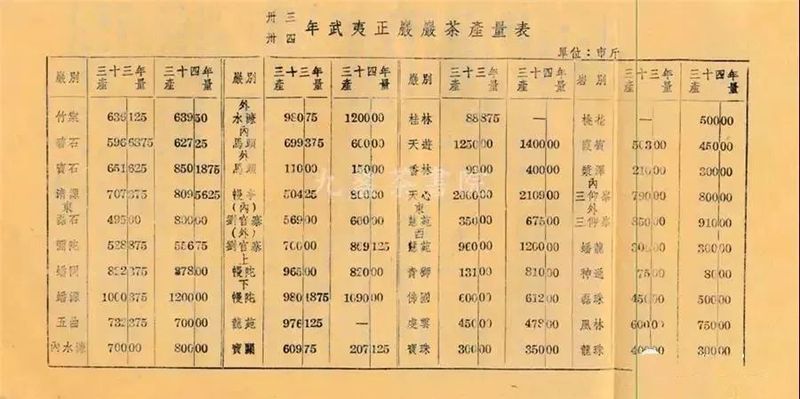 卅三
卅四 年武夷正巖巖茶產量表
單位：市斤
巖別 三十三年產量 三十四年產量 巖別 三十三年產量 三十四年產量 巖別 三十三年產量 三十四年產量 岩別 三十三年產量 三十四年產量
竹窠 636 125 639 50 外水濂 980 75 1200 00 桂林 88 875 — 桃花 500 00
碧石 596 6375 627 25 內馬頭 699 375 600 00 天遊 1250 00 1400 00 霞賓 503 00 450 00
寶石 651 625 850 1875 外馬頭 110 00 150 00 香林 99 00 400 00 210 00 300 00
清源 707 375 809 5625 幔亭 504 25 800 00 天心 2000 00 2109 00 內三仰峯 790 00 800 00
東磊石 495 00 800 00 (內)劉官寨 569 00 800 00 東慧苑 350 00 675 00 外三仰峯 850 00 910 00
彌陀 528 875 556 75 (外)劉官寨 700 00 869 125 西慧苑 960 00 1200 00 蟠龍 300 00
蟠 892 375 878 00 上幔陀 965 00 820 00 青獅 131 00 810 00 神通 75 00 80 00
蟠源 1000 375 1200 00 下幔陀 980 4875 1090 00 佛國 600 00 612 00 磊珠 450 00 500 00
五曲 732 375 700 00 龍苑 976 125 — 慶雲 450 00 478 00 風林 600 00 750 00
內水濂 700 00 800 00 寶關 609 75 207 125 寶珠 300 00 350 00 龍珠 400 00 300 00